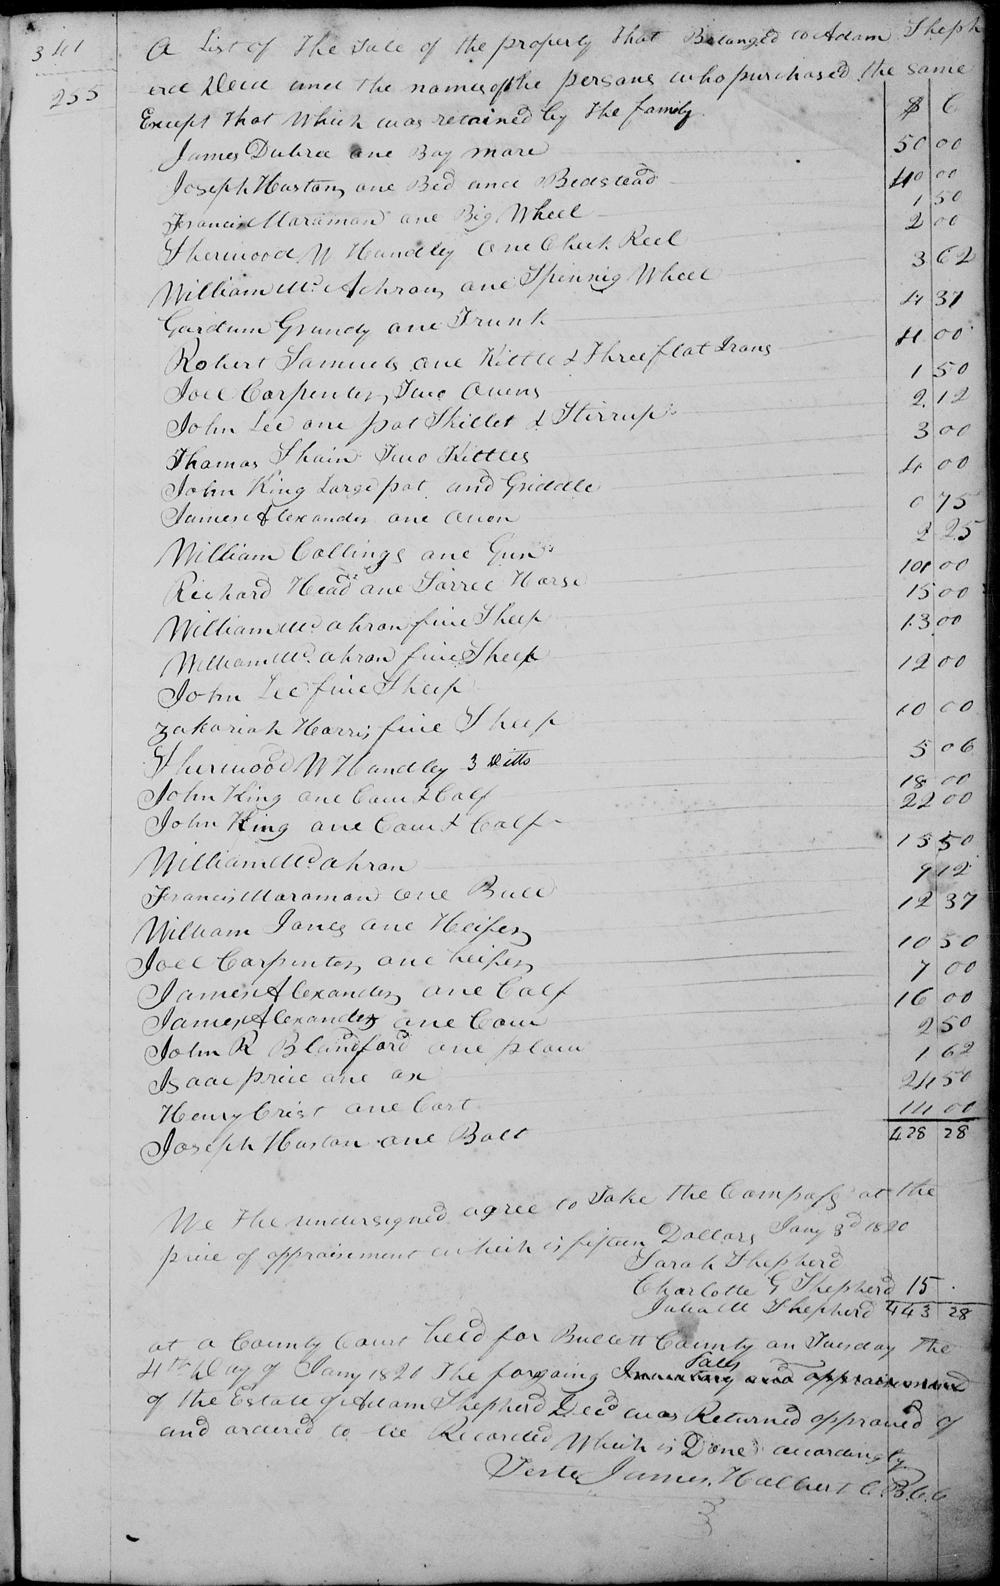 341
255
A List of The Sale of the property that Belonged to Adam Sheph
erd Decd and the names of the persons who purchased the same
Except that Which was retained by the family $ C
James Dubree one Bay mare 50 00
Joseph Huston one Bed and Bedstead 40 00
Francis Maraman one Big Wheel 1 50
Sherwood W Handley one Check Reel 2 00
William McAchron one Spinnig Wheel 3 62
Gardum Grundy one Trunk 4 37
Robert Samuels one Kittle & Three flat Irons 4 00
Joel Carpenter Two Ovens 1 50
John Lee one pot Skillet & Stirrups 2 12
Thomas Shain Two Kittles 3 00
John King Large pot and Griddle 4 00
James Alexander one Oven 0 75
William Collings one Gun 2 25
Richard Head one Sorrel Horse 101 00
William McAhron five Sheep 15 00
William McAhron five Sheep 13 00
John Lee five Sheep 12 00
Zakariah Harris five Sheep 10 00
Sherwood W Handley 3 Ditto 5 06
John King one Cow & Calf 18 00
John King one Cow & Calf 22 00
William McAhron 15 50
Francis Maraman one Bull 9 12
William Jones one Heifer 12 37
Joel Carpenter one heifer 10 50
James Alexander one Calf 7 00
James Alexander one Cow 16 00
John R Blandford one plow 2 50
Isaac price one ax 1 62
Henry Crist one Cart 24 50
Joseph Huston one Bolt 14 00
428 28
We the undersigned agree to Take the Compass at the
price of appraisement which is fifteen Dollars Jany 3d 1820
Sarah Shepherd
Charlotte G Shepherd 15 .
Julia M Shepherd 443 28
at a County Court held for Bullett County on Tuesday the
4th Day of Jany 1820 The forgoing Inventory and appraisement Sales
of the Estate of Adam Shepherd Decd was Returned approved of
and ordered to be Recorded Which is Done accordingly
Teste James Halbert C.B.C.C